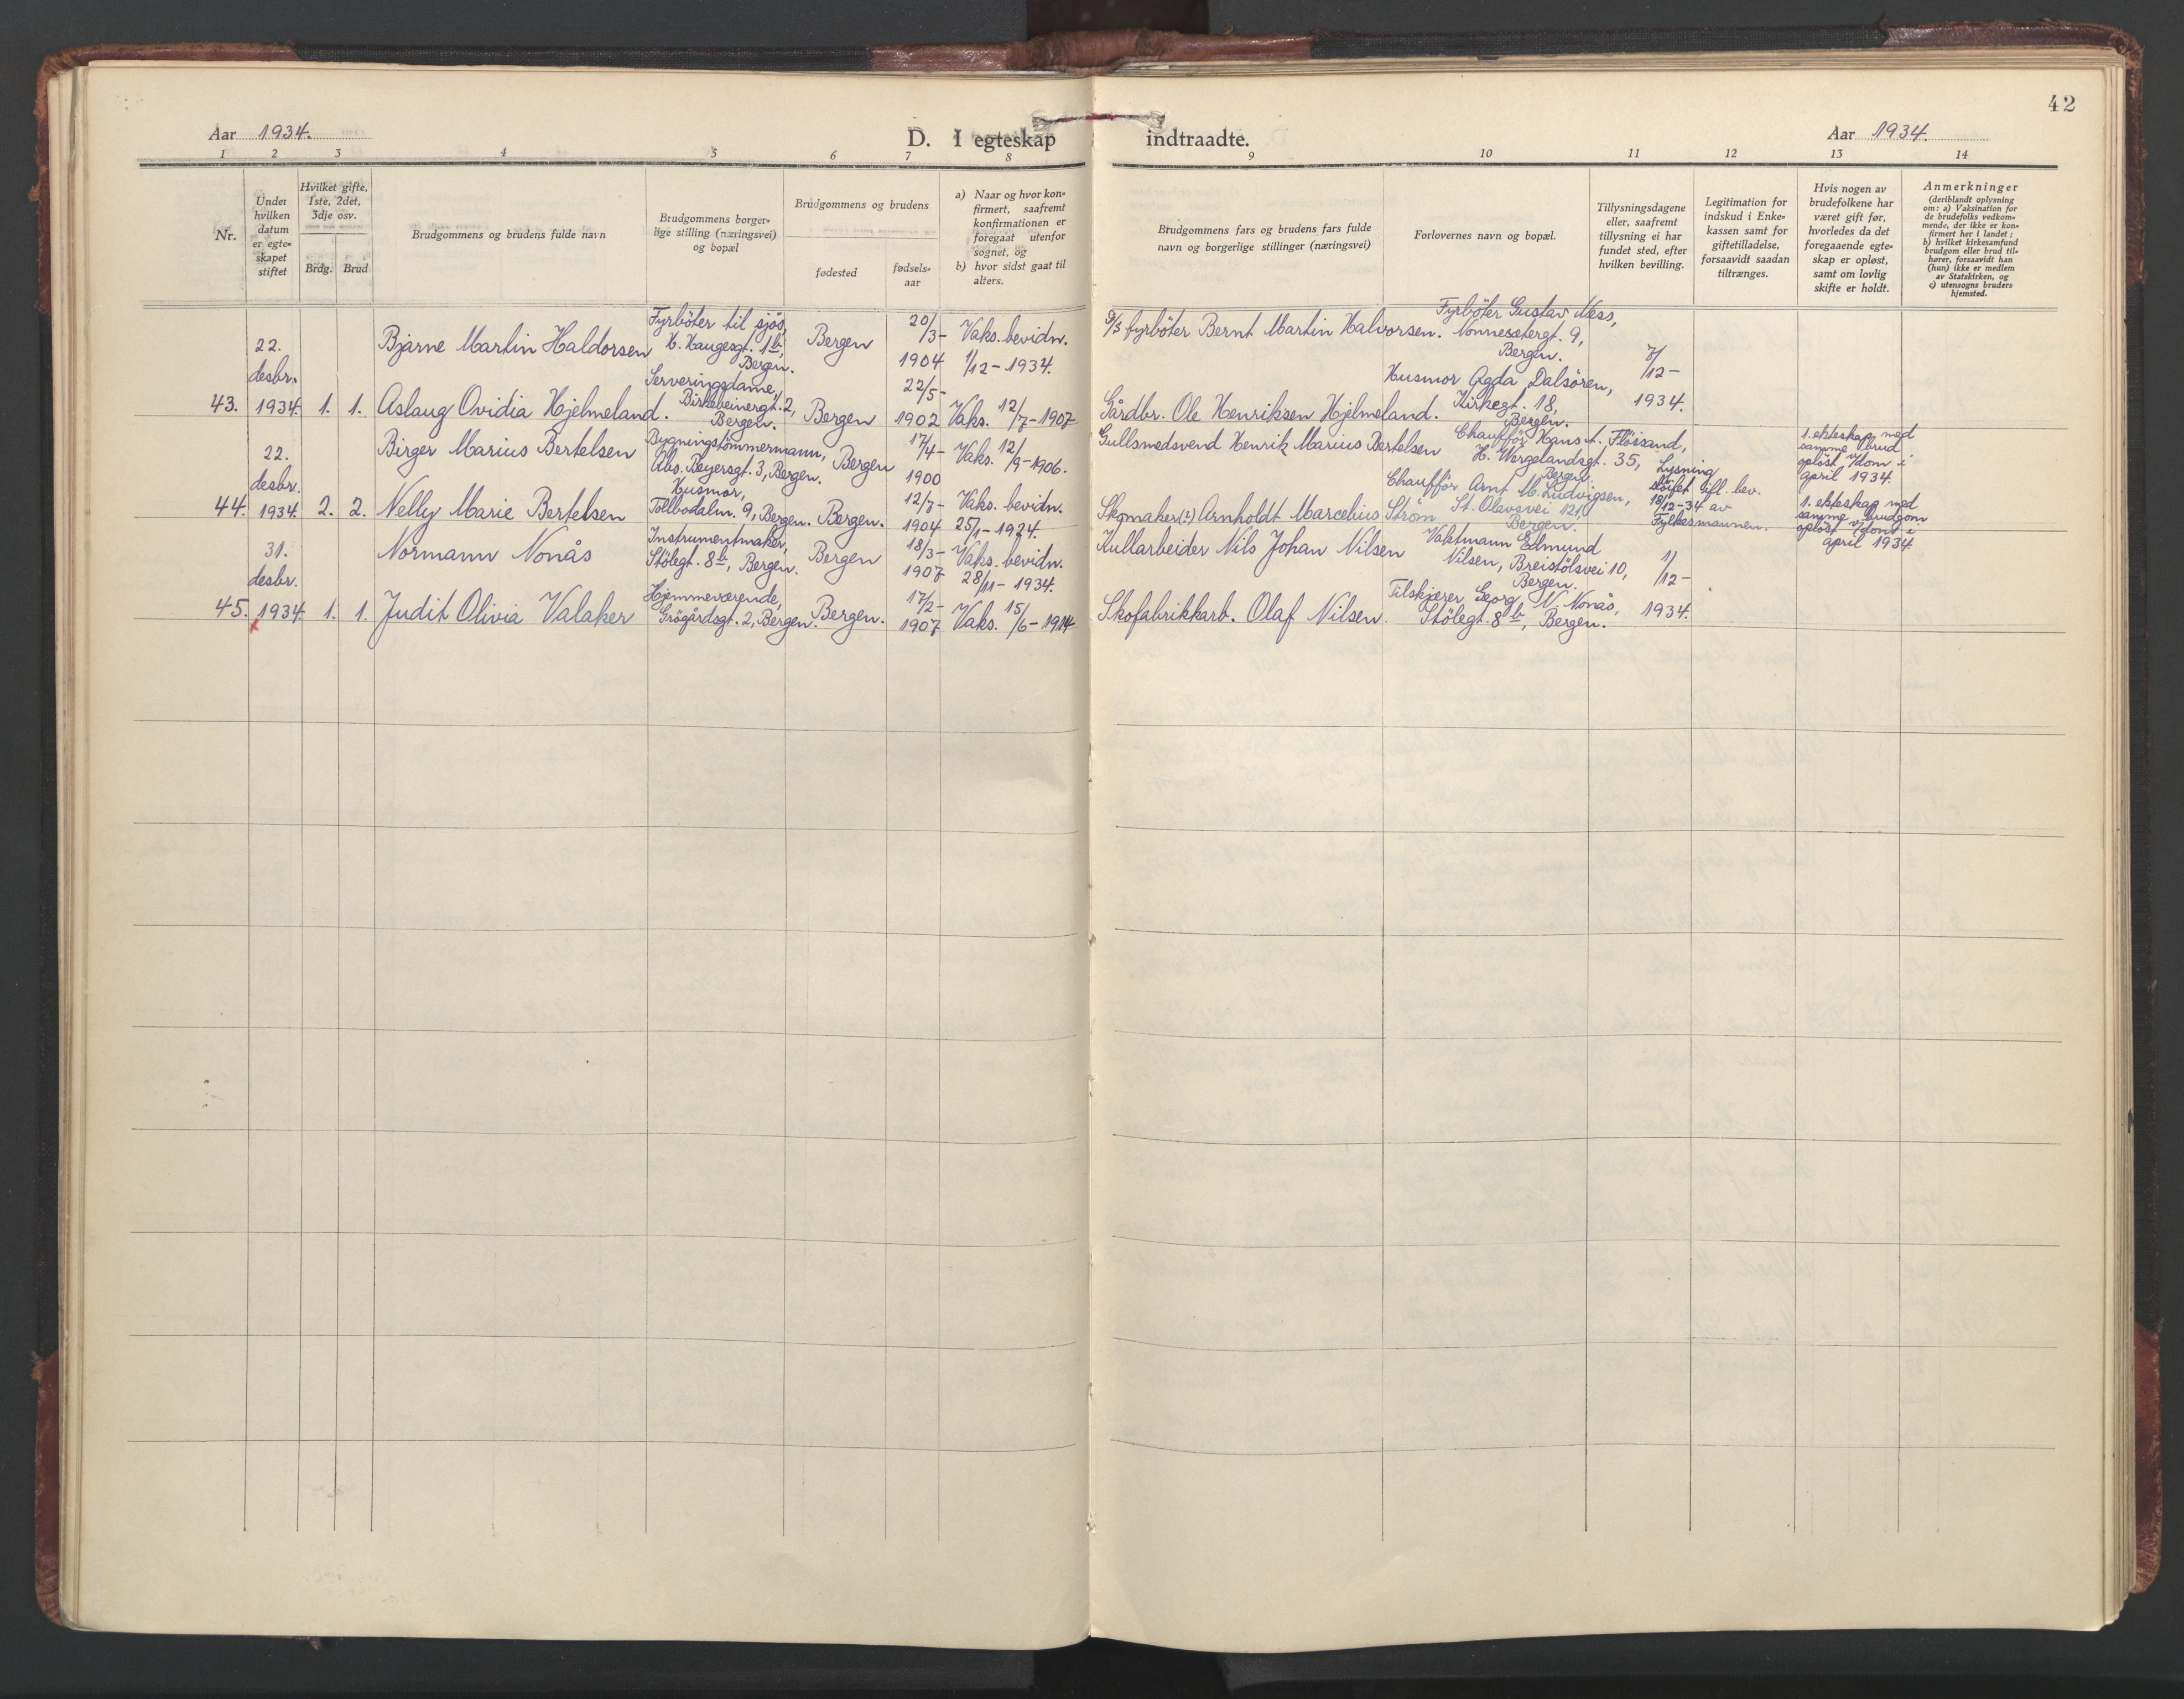 42
Aar 1934.
D. I egteskap indtraadte.
Aar 1934.
1 2 3 4 5 6 7 8 9 10 11 12 13 14
Nr.
Under
hvilken
datum
er egte-
skapet
stiftet
Hvilket gifte,
1ste, 2det,
3dje osv.
Brdg. Brud
Brudgommens og brudens fulde navn
Brudgommens borger-
lige stilling (næringsvei)
og bopæl
Brudgommens og brudens
fødested
fødsels-
aar
a) Naar og hvor kon-
firmert, saafremt
konfirmationen er
foregaat utenfor
sognet, og
b) hvor sidst gaat til
alters.
Brudgommens fars og brudens fars fulde
navn og borgerlige stillinger (næringsvei)
Forlovernes navn og bopæl.
Tillysningsdagene
eller, saafremt
tillysning ei har
fundet sted, efter
hvilken bevilling.
Legitimation for
indskud i Enke-
kassen samt for
giftetilladelse,
forsaavidt saadan
tiltrænges.
Hvis nogen av
brudefolkene har
været gift før,
hvorledes da det
foregaaende egte-
skap er opløst,
samt om lovlig
skifte er holdt.
Anmerkninger
(deriblandt oplysning
om: a) Vaksination for
de brudefolks vedkom-
mende, der ikke er kon-
firmert her i landet;
b) hvilket kirkesamfund
brudgom eller brud til-
hører, forsaavidt han
(hun) ikke er medlem
av Statskirken, og
c) utensogns bruders
hjemsted.
43.
22.
desbr.
1934.
1. 1.
Bjarne Martin Haldorsen
Fyrböter til sjös,
H. Haugesgt. 1b,
Bergen.
Bergen
20/3-
1904
Vaks. bevidn.
1/12-1934.
fyrböter Bernt Martin Halvorsen.
Fyrböter Gustav Ness,
Nonnesetergt. 9,
Bergen.
Aslaug Ovidia Hjelmeland.
Serveringsdame,
Birkebeinergt. 2,
Bergen.
Bergen
22/5-
1902
Vaks. 12/7-1907
Gårdbr. Ole Henriksen Hjelmeland.
Husmor Agda Dalsören,
Kirkegt. 18,
Bergen.
7/12-
1934.
44.
22.
desbr.
1934.
2. 2.
Birger Marius Bertelsen
Bygningstömmermann,
Abs. Beyersgt. 3, Bergen.
Bergen
17/4-
1900
Vaks. 12/9-1906.
Gullsmedsvend Henrik Marius Bertelsen
Chaufför Hans A. Flöisand,
H. Wergelandsgt. 35,
Bergen.
Nelly Marie Bertelsen
Husmor,
Tollbodalm. 9, Bergen.
Bergen.
12/7-
1904
Vaks. bevidn.
25/1-1924.
Skomaker(?) Arnholdt Marcelius Ström
Chaufför Arnt M. Ludvigsen,
St. Olavsvei 121,
Bergen.
Lysning
slöifet ifl. bev.
18/12-34 av
Fylkesmannen.
1. ekteskap med
samme brud
oplöst v/dom i
april 1934.
1. ekteskap med
samme brudgom
oplöst v/dom i
april 1934.
45.
31.
desbr.
1934.
1. 1.
Normann Nonås
Instrumentmaker,
Stölegt. 8b, Bergen.
Bergen
18/3-
1907
Vaks. bevidn.
28/11-1934.
Kullarbeider Nils Johan Nilsen
Vaktmann Edmund
Nilsen, Breistölsvei 10,
Bergen.
Judit Olivia Valaker
Hjemmeværende,
Grögårdsgt. 2, Bergen.
Bergen.
17/2-
1907
Vaks. 15/6-1914
Skofabrikkarb. Olaf Nilsen.
Tilskjærer Georg N. Nonås,
Stölegt. 8b, Bergen.
1/12-
1934.